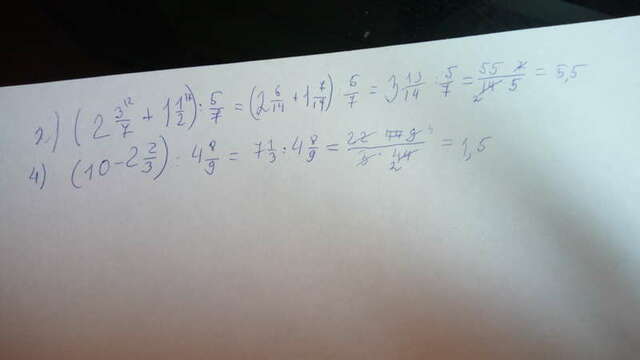 2.) (2 3/7 + 1 1/2) : 5/7 = (2 6/14 + 1 7/14) : 5/7 = 3 13/14 : 5/7 = 55 7/14 5 = 5,5
4) (10 - 2 2/3) : 4 8/9 = 7 1/3 : 4 8/9 = = 1,5